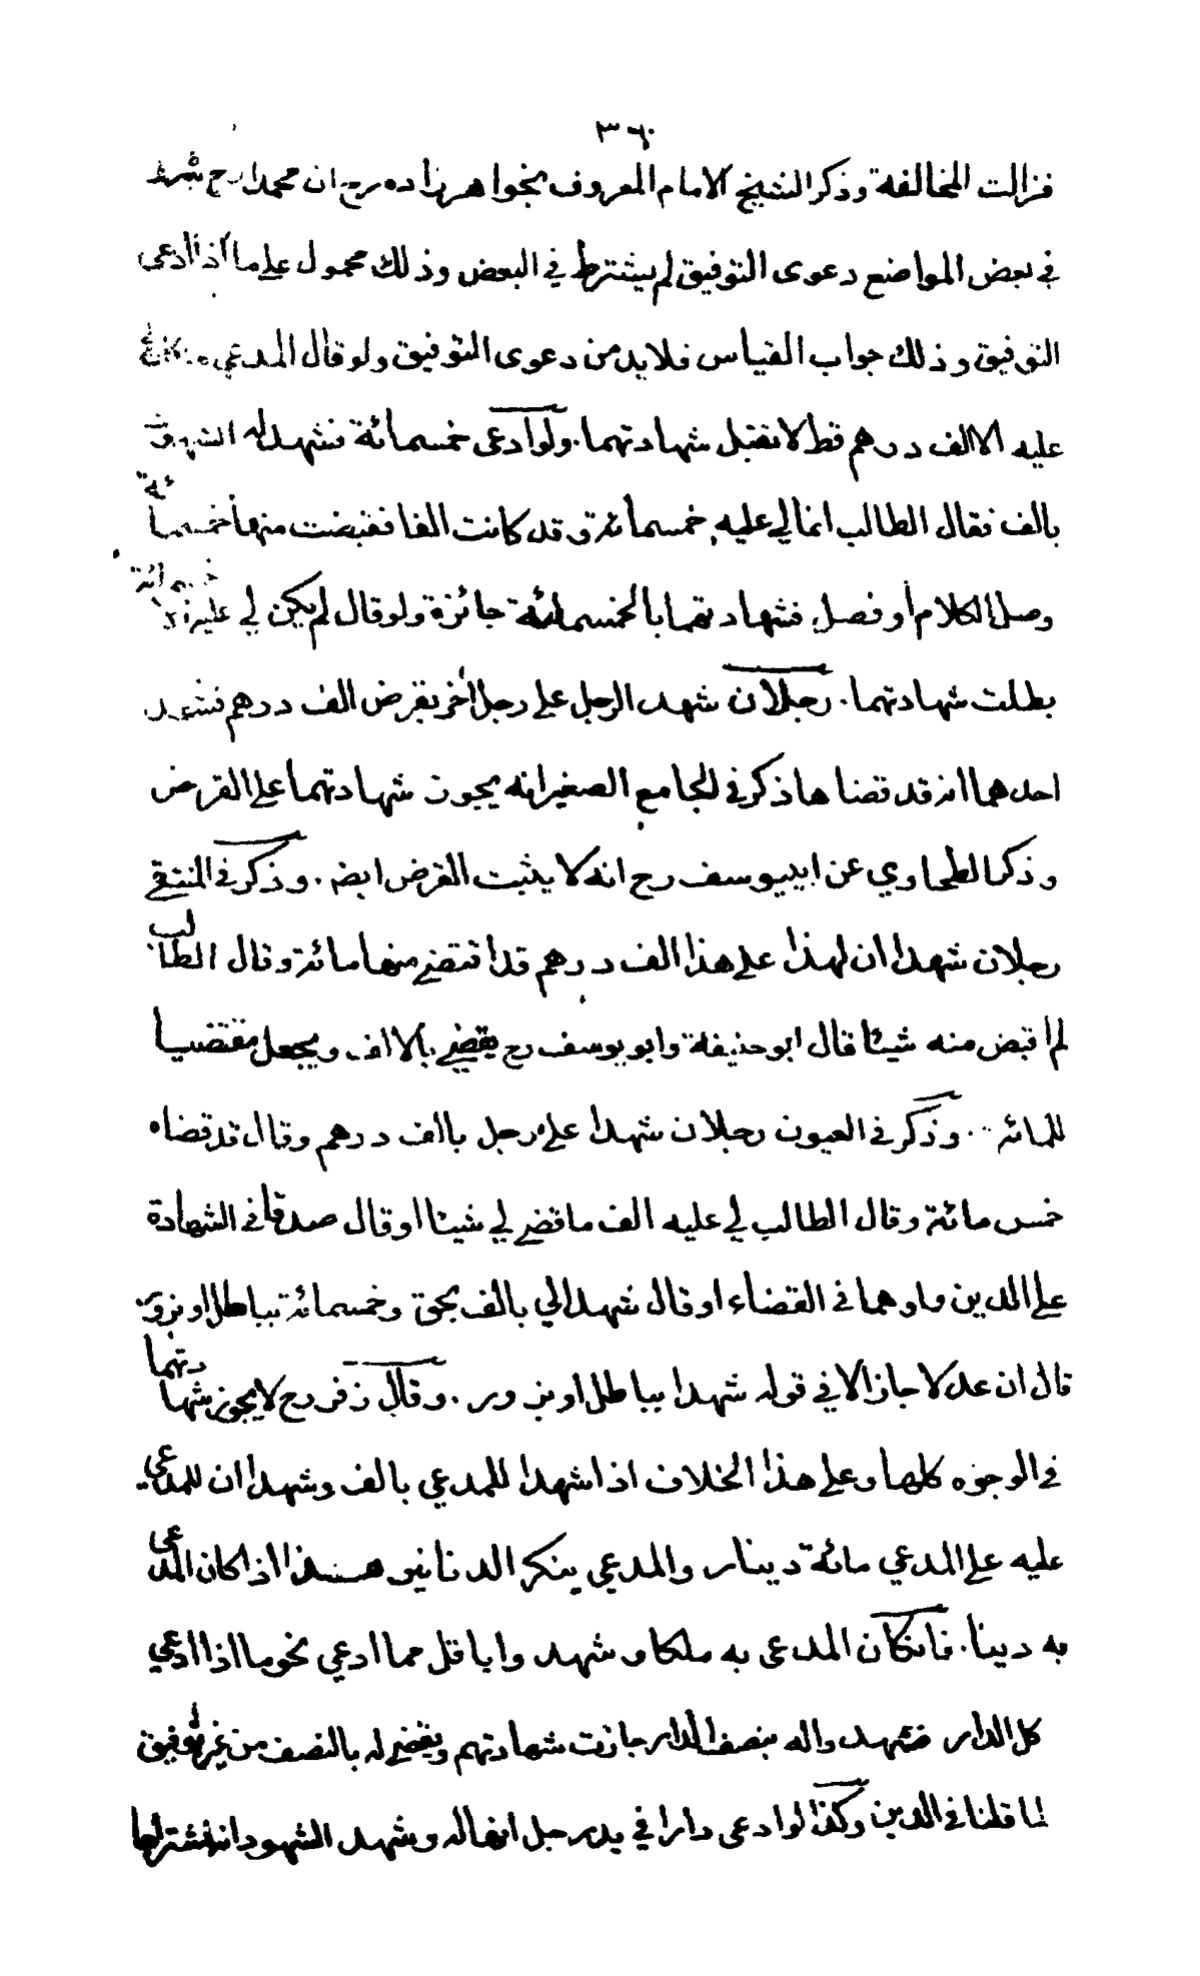 ٣٦٠
فزالت المخالفة وذكر الشيخ الامام المعروف بخواهر زاده رح ان محمدا رح شرط
في بعض المواضع دعوى التوفيق لم يشترط في البعض وذلك محمول على ما اذا ادعى
التوفيق وذلك جواب القياس فلابد من دعوى التوفيق ولو قال المدعي ما كان لي
عليه الا الف درهم قط لا تقبل شهادتهما . ولو ادعى خمسمائة فشهد له الشهود
بالف فقال الطالب انما لي عليه خمسمائة وقد كانت الفا فقبضت منها خمسمائة
وصل الكلام او فصل فشهادتهما بالخمسمائة جائزة ولو قال لم يكن لي عليه الا خمسمائة
بطلت شهادتهما . رجلان شهد الرجل على رجل اخر بقرض الف درهم فشهد
احدهما انه قد قضاها ذكر في الجامع الصغير انه يجوز شهادتهما على القرض
وذكر الطحاوي عن ابي يوسف رح انه لا يثبت القرض ايضه . وذكر في المنتقى
رجلان شهدا ان لهذا على هذا الف درهم قد اقتضى منها مائة وقال الطالب
لم اقبض منه شيئا قال ابو حنيفة وابو يوسف رح يقضي بالالف ويجعل مقتضيا
للمائة .. وذكر في العيون رجلان شهدا على رجل بالف درهم وقالا قد قضاه
خمس مائة وقال الطالب لي عليه الف ما قضى لي شيئا او قال صدقا في الشهادة
على الدين واوهما في القضاء او قال شهدا لي بالف بحق وخمسمائة بباطل او بزور
قال ان عدلا جاز الا في قوله شهدا بباطل او بزور . وقال زفر رح لا يجوز شهادتهما
في الوجوه كلها وعلى هذا الخلاف اذا شهدا للمدعي بالف وشهدا ان للمدعي
عليه على المدعي مائة دينار والمدعي ينكر الدنانير هذا اذا كان المدعى
به دينا . فان كان المدعى به ملكا وشهدوا باقل مما ادعي نحو ما اذا ادعي
كل الدار فشهدوا له بنصف الدار جازت شهادتهم ويقضى له بالنصف من غير توفيق
لما قلنا في الدين وكذا لو ادعى دارا في يد رجل انها له وشهد الشهود انه اشتراها